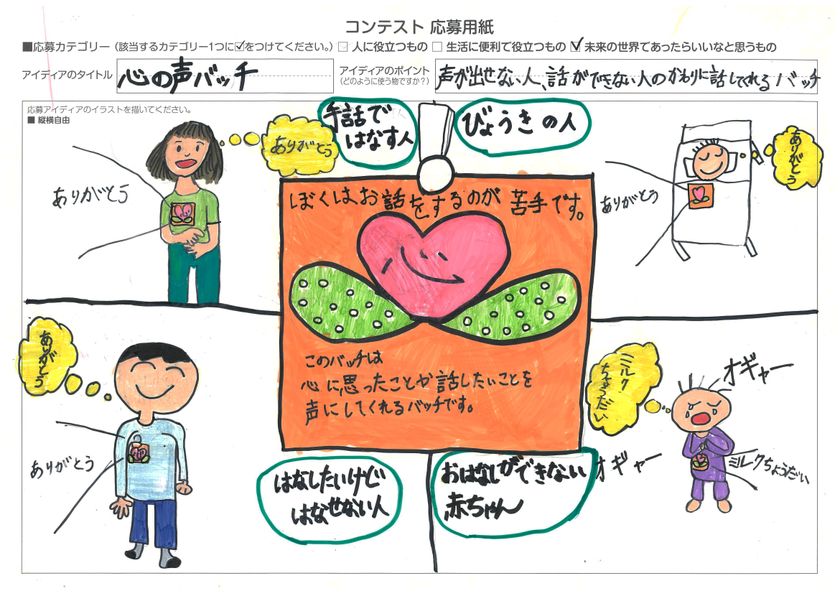 コンテスト 応募用紙
■応募カテゴリー (該当するカテゴリー1つに☑をつけてください。) □ 人に役立つもの □ 生活に便利で役立つもの ☑ 未来の世界であったらいいなと思うもの
アイディアのタイトル 心の声バッチ
アイディアのポイント 声が出せない人、話ができない人のかわりに話してくれるバッチ
(どのように使う物ですか?)
応募アイディアのイラストを描いてください。
■ 縦横自由
手話で
はなす人
びょうきの人
ありがとう
ありがとう
ありがとう
ありがとう
ぼくは、お話をするのが苦手です。
このバッチは
心に思ったことや話したいことを
声にしてくれるバッチです。
ありがとう
ありがとう
ミルク
ちょうだい
オギャー
オギャー
ミルクちょうだい
はなしたいけど
はなせない人
おはなしができない
赤ちゃん